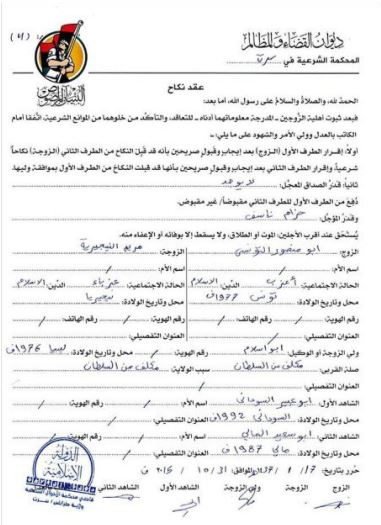 ديوان القضاء والمظالم
المحكمة الشرعية في سرت
البنيان المرصوص
عقد نكاح
الحمد لله، والصلاة والسلام على رسول الله، أما بعد:
فبعد ثبوت أهلية الزوجين - المدرجة معلوماتهما أدناه - للتعاقد، والتأكد من خلوهما من الموانع الشرعية، اتفقا أمام
الكاتب بالعدل وولي الأمر والشهود على ما يلي:-
أولاً: إقرار الطرف الأول (الزوج) بعد إيجاب وقبول صريحين بأنه قد قبل النكاح من الطرف الثاني (الزوجة) نكاحاً
شرعياً، وإقرار الطرف الثاني بعد إيجاب وقبول صريحين بأنها قد قبلت النكاح من الطرف الأول بموافقة وليها.
ثانياً: قدر الصداق المعجل: لا يوجد
دفع من الطرف الأول للطرف الثاني مقبوضاً/ غير مقبوض.
وقدر المؤجل: حزام ناسف
يستحق عند أقرب الأجلين، الموت أو الطلاق، ولا يسقط إلا بوفائه أو الإعفاء منه.
الزوج: ابو منصور التونسي الزوجة: مريم النيجيرية
اسم الأم: / اسم الأم: /
الحالة الاجتماعية: أعزب الدين: الاسلام الحالة الاجتماعية: عزباء الدين: الاسلام
محل وتاريخ الولادة: تونس 1977ف محل وتاريخ الولادة: نيجيريا
رقم الهوية: / رقم الهاتف: / رقم الهوية: / رقم الهاتف: /
العنوان التفصيلي: العنوان التفصيلي:
ولي الزوجة أو الوكيل: ابو اسلام رقم الهوية: / محل وتاريخ الولادة: ليبيا 1976ف
صلة القربى: مكلف من السلطان سبب الولاية: مكلف من السلطان
العنوان التفصيلي: /
الشاهد الأول: ابو عمير السوداني اسم الأم: / رقم الهوية: /
محل وتاريخ الولادة: السودان 1992ف العنوان التفصيلي:
الشاهد الثاني: ابو سعيد المالي اسم الأم: / رقم الهوية: /
محل وتاريخ الولادة: مالي 1987ف العنوان التفصيلي:
حرر بتاريخ: 17/1/ الموافق: 31/10/2015 ف
الزوج الزوجة ولي الزوجة الشاهد الأول الشاهد الثاني
الدولة
الإسلامية